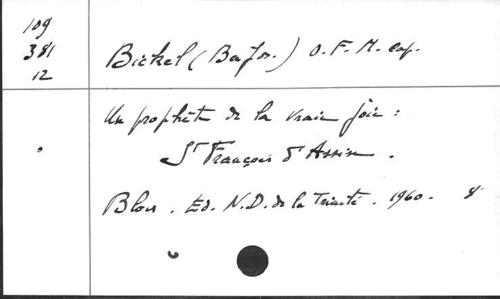 109
381
12
Bickel ( ) O.F.M. cap.
Un prophète de la vraie joie :
St François d'Assise .
Blois . Ed. N.D. de la Trinité . 1960 . 8°